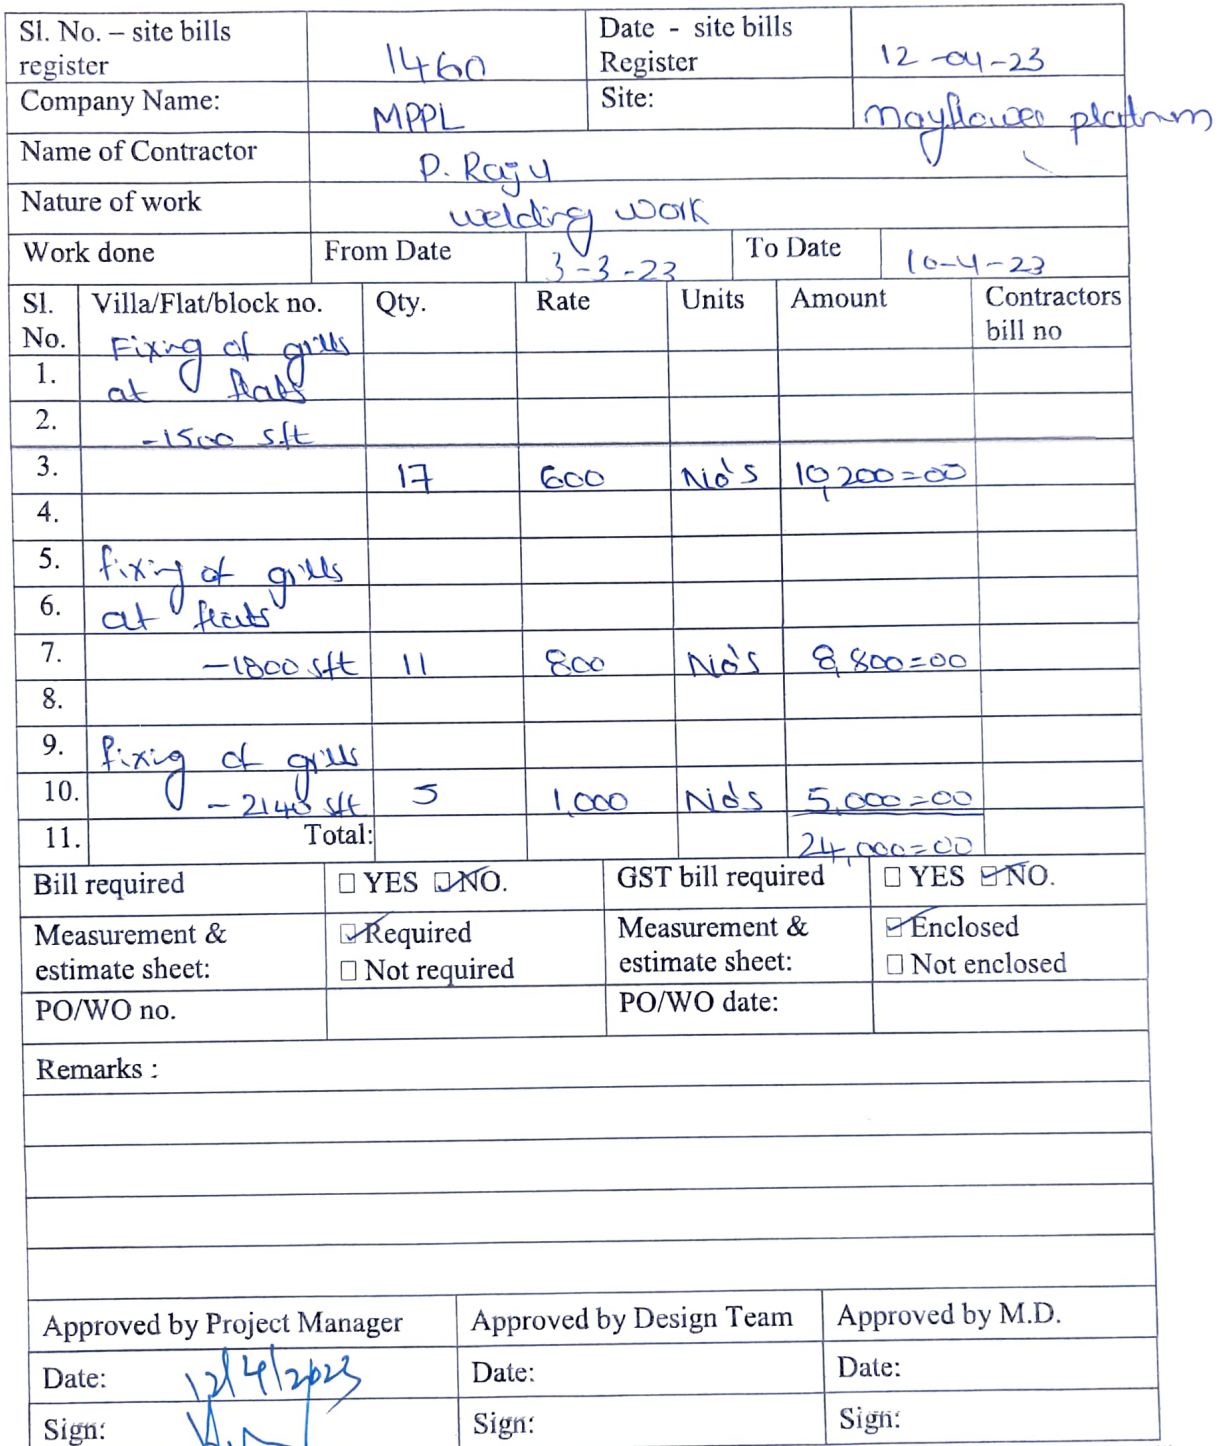 Sl. No. – site bills register 1460 Date - site bills Register 12-04-23
Company Name: MPPL Site: Mayflower platinum
Name of Contractor P. Raju
Nature of work welding work
Work done From Date 3-3-23 To Date 10-4-23
Sl. No. Villa/Flat/block no. Qty. Rate Units Amount Contractors bill no
Fixing of grills
1. at flats
2. -1500 sft
3. 17 600 No's 10,200=00
4.
5. fixing of grills
6. at flats
7. -1800 sft 11 800 No's 8,800=00
8.
9. fixing of grills
10. -2140 sft 5 1,000 No's 5,000=00
11. Total: 24,000=00
Bill required ☐ YES ☑ NO. GST bill required ☐ YES ☑ NO.
Measurement & estimate sheet: ☑ Required ☐ Not required Measurement & estimate sheet: ☑ Enclosed ☐ Not enclosed
PO/WO no. PO/WO date:
Remarks :
Approved by Project Manager Approved by Design Team Approved by M.D.
Date: 12/4/2023 Date: Date:
Sign: Sign: Sign: